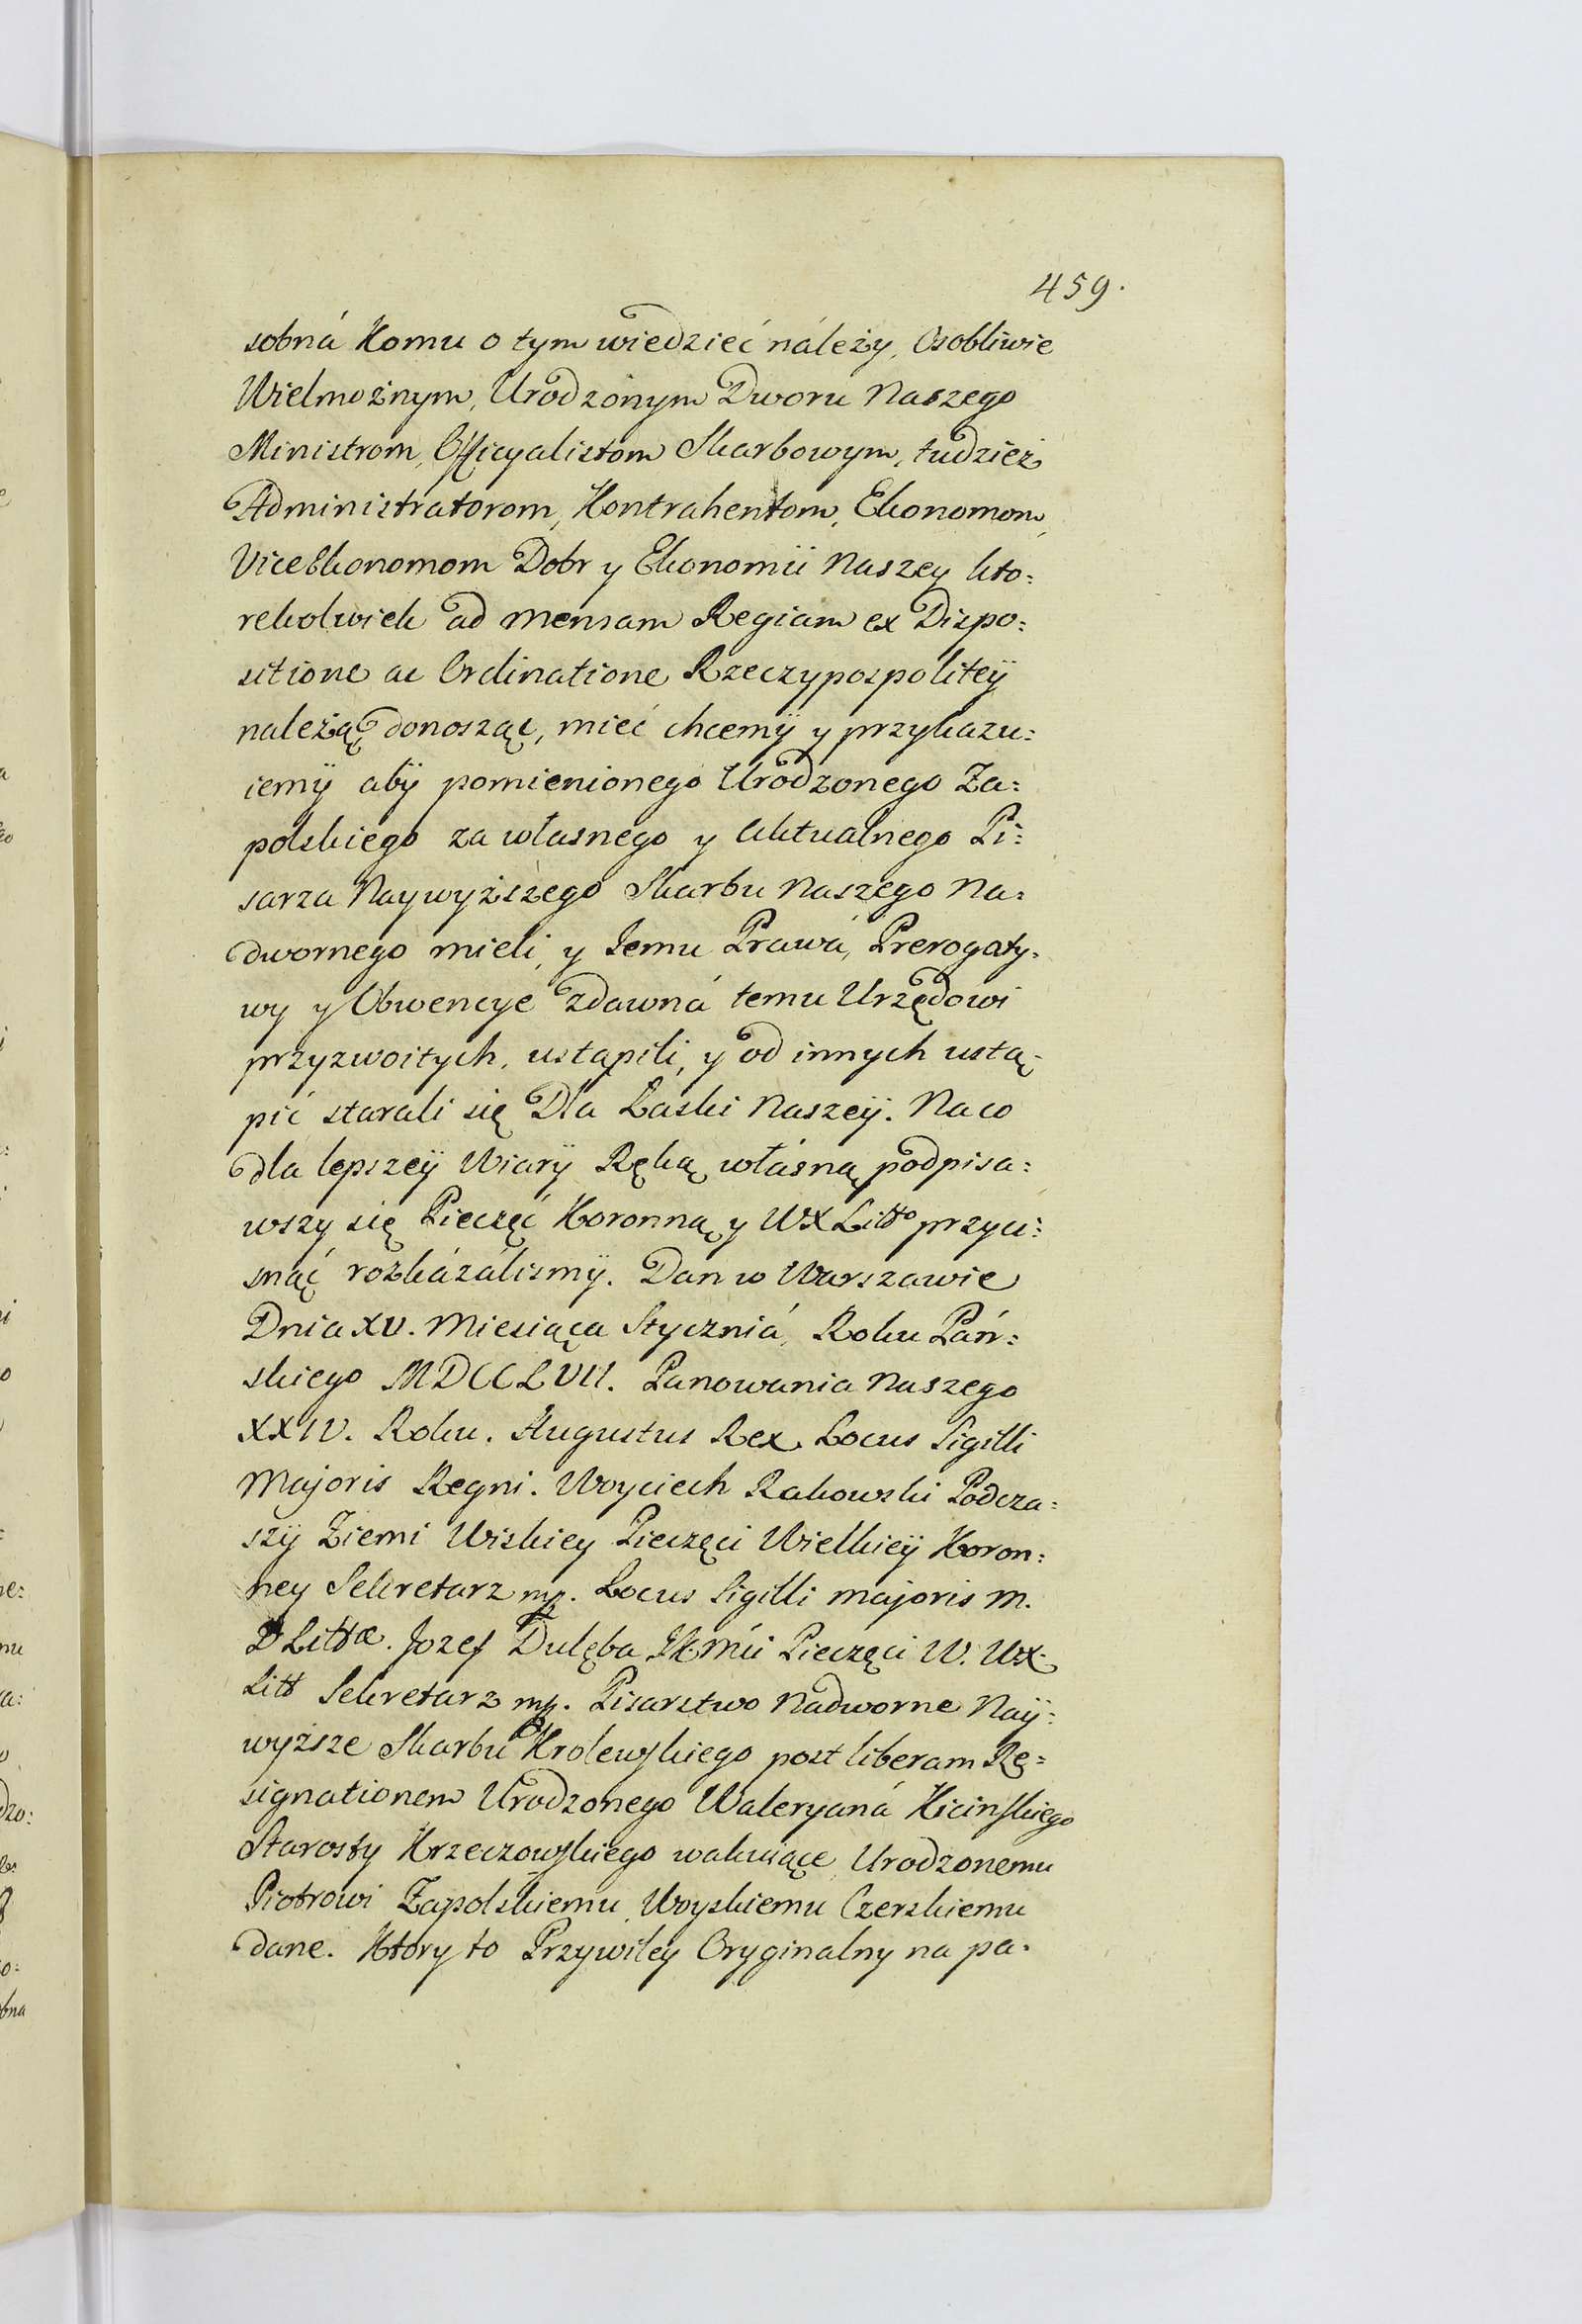 459.
sobná Komu o tym wiedzieć náleży, Osobliwie
Wielmożnym, Urodzonym Dworu Naszego
Ministrom, Officyalistom Skarbowym, tudzież
Administratorom, Kontrahentom, Ekonomom,
ViceEkonomom Dobr y Ekonomii Naszey kto:
rekolwiek ad mensam Regiam ex Dispo:
sitione ac Ordinatione Rzeczypospoliteÿ
należąc donosząc, mieć chcemÿ y przykazu:
iemÿ abÿ pomienionego Urodzonego Za:
polskiego za własnego y Aktualnego Pi:
sarza Naywyższego Skarbu Naszego Na:
dwornego mieli, y Jemu Prawá, Prerogaty:
wy y Obwencye zdawná temu Urzędowi
przyzwoitych, ustąpili, y od innych ustą:
pić starali się Dla Łaski Naszeÿ. Na co
dla lepszeÿ Wiarÿ Ręką włásną podpisa:
wszy się Pieczęć Koronną y WX Litto przyci:
snąć rozkázálismÿ. Dan w Warszawie
Dnia XV. Miesiąca Styczniá, Roku Pań:
skiego MDCCLVII. Panowania Naszego
XXIV. Roku. Augustus Rex. Locus Sigilli
Majoris Regni. Woyciech Rakowski Podcza:
szÿ Ziemi Wiskiey Pieczęci Wielkieÿ Koron:
ney Sekretarz mp. Locus Sigilli majoris M.
D Littæ. Jozef Dulęba JKMci Pieczęci W. WX.
Litt Sekretarz mp. Pisarstwo Nadworne Naÿ:
wyższe Skarbu Krolewskiego post liberam Re:
signationem Urodzonego Waleryaná Kicinskiego
Starosty Krzeczowskiego wakuiące, Urodzonemu
Piotrowi Zapolskiemu, Woyskiemu Czerskiemu
dane. Ktory to Przywiley Oryginalny na pa: